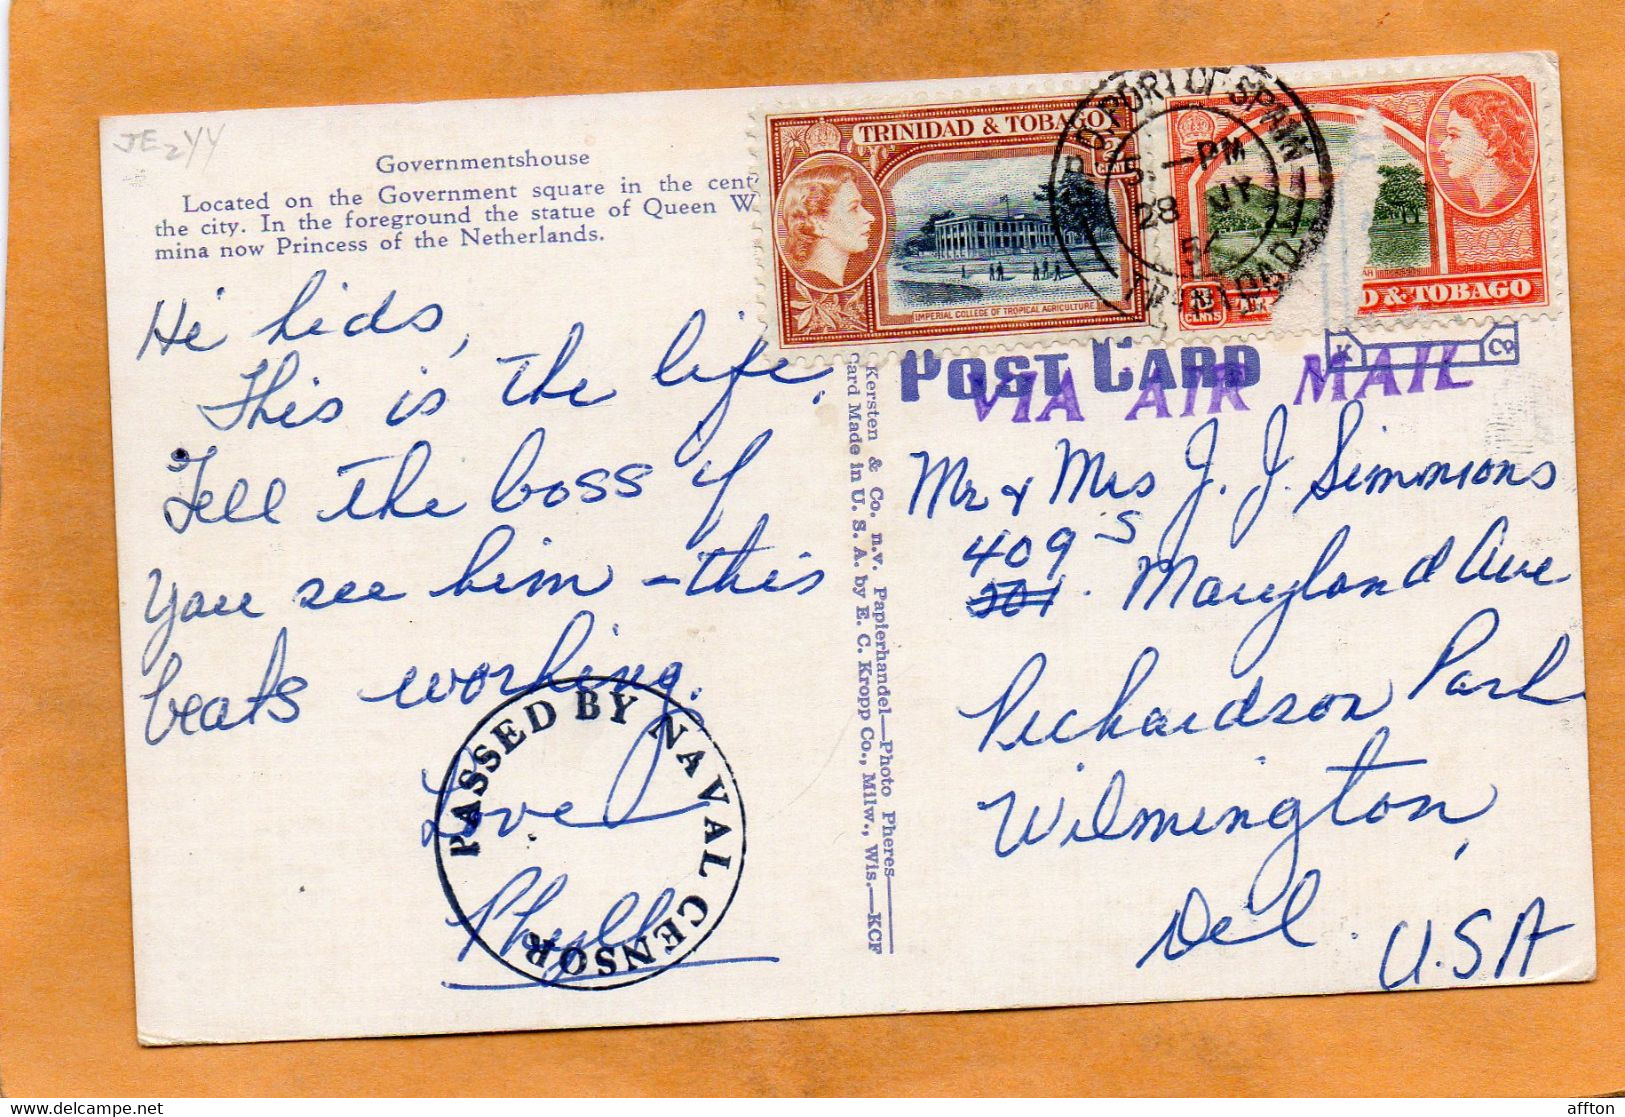 JE244
Governmentshouse
Located on the Government square in the cent
the city. In the foreground the statue of Queen W
mina now Princess of the Netherlands.
Hi kids,
This is the life.
Tell the boss if
you see him - this
beats working.
Love
PASSED BY NAVAL CENSOR
Kersten & Co. n.v. Papierhandel—Photo Pheres
Card Made in U. S. A. by E. C. Kropp Co., Milw., Wis.—KCF
TRINIDAD & TOBAGO
CENTS
IMPERIAL COLLEGE OF TROPICAL AGRICULTURE
G.P.O. PORT OF SPAIN
5 — PM
28 JY
5
TRINIDAD
D & TOBAGO
CENTS
POST CARD
K Co
VIA AIR MAIL
Mr & Mrs J. J. Simmons
409 S
201 Maryland Ave
Richardson Park
Wilmington,
Del.
U.S.A
affton